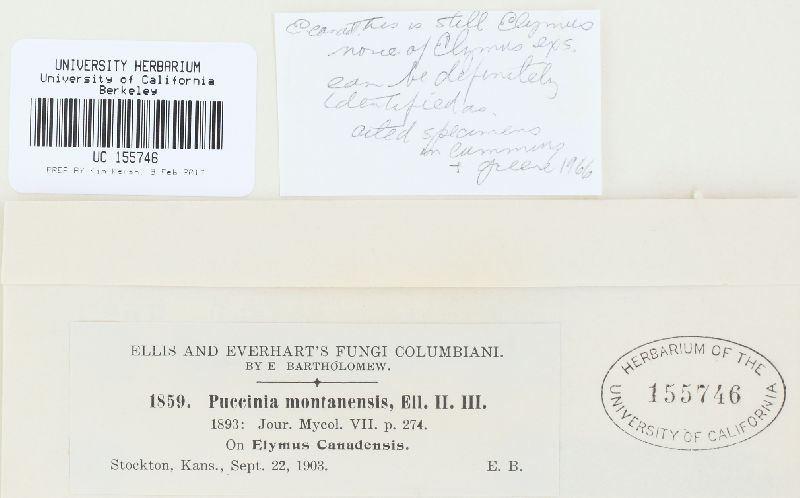 UNIVERSITY HERBARIUM
University of California
Berkeley
UC 155746
PREP BY Kim Kersh, 8 Feb 2017
is still Elymus
none of Elymus exs.
can be definitely
identified as.
cited specimens
in Cummins
+ Greene 1966
ELLIS AND EVERHART'S FUNGI COLUMBIANI.
BY E BARTHOLOMEW.
1859. Puccinia montanensis, Ell. II. III.
1893: Jour. Mycol. VII. p. 274.
On Elymus Canadensis.
Stockton, Kans., Sept. 22, 1903. E. B.
HERBARIUM OF THE
155746
UNIVERSITY OF CALIFORNIA